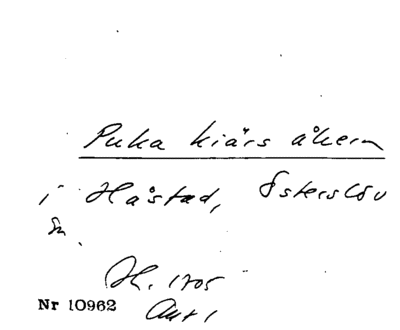 Puka kiärs åkern
i Håstad, Österslöv
sn.
H. 1705
Nr 10962 Akt 1